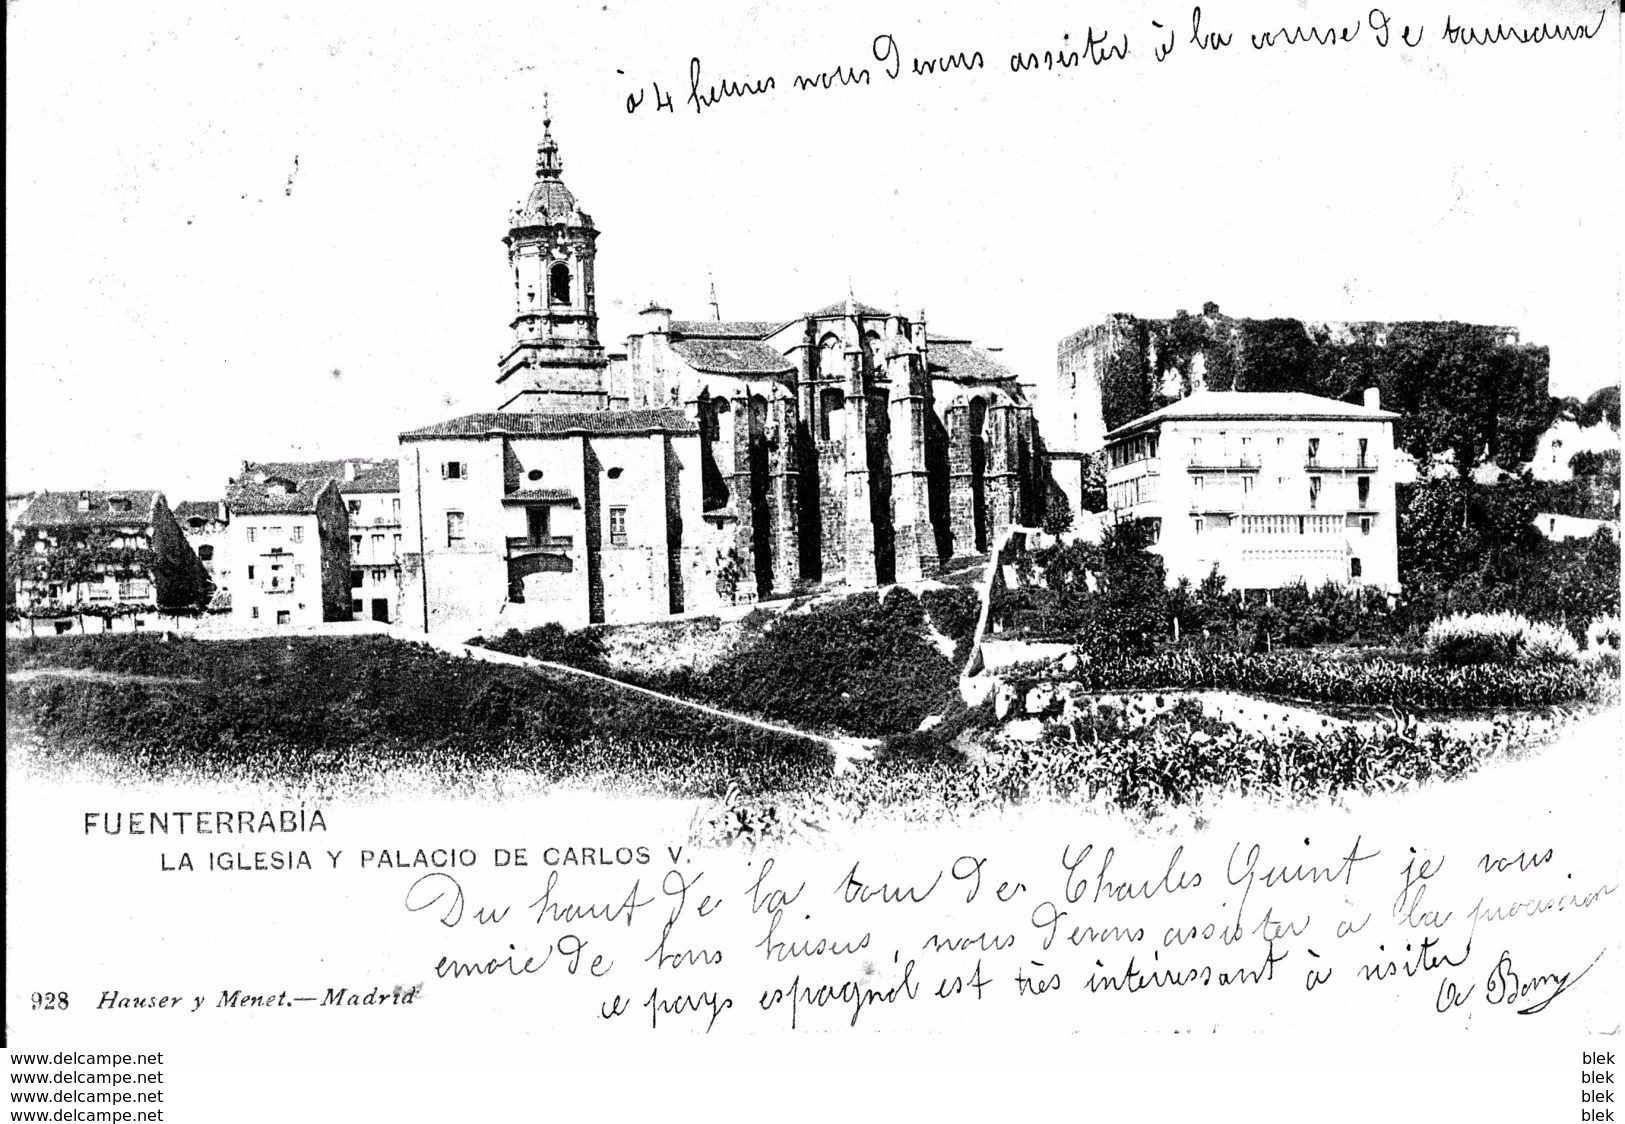 à 4 heures nous devons assister à la course de taureaux
FUENTERRABÍA
LA IGLESIA Y PALACIO DE CARLOS V.
Du haut de la tour de Charles Quint je vous
envoie de bons baisers, nous devons assister à la procession
ce pays espagnol est très intéressant à visiter
928 Hauser y Menet.—Madrid
www.delcampe.net
www.delcampe.net
www.delcampe.net
www.delcampe.net
blek
blek
blek
blek